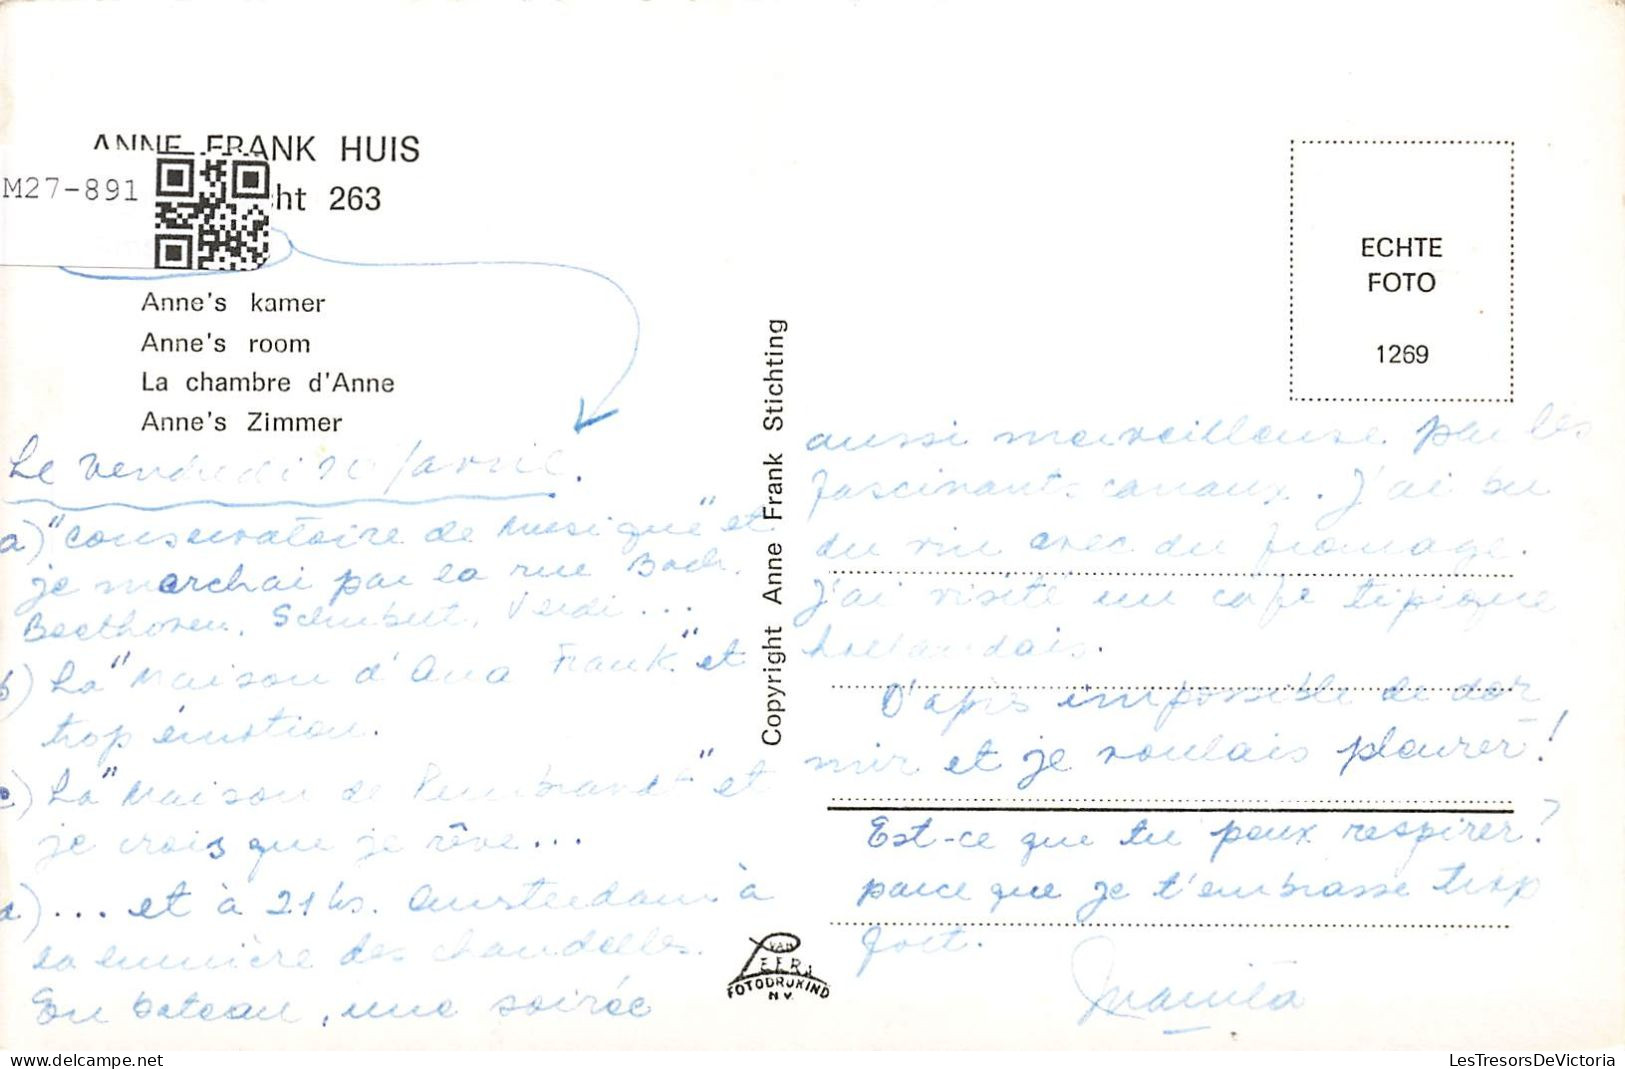 ANNE FRANK HUIS
M27-891
ht 263
Anne's kamer
Anne's room
La chambre d'Anne
Anne's Zimmer
Le vendredi 20/avril.
a) "conservatoire de musique" et
je marchai par la rue Bach,
Beethoven, Schubert, Verdi...
b) La "maison d'Ana Frank" et
trop émotion.
c) La "maison de Rembrandt" et
je crois que je rêve...
d) ... et à 21 hs. Amsterdam à
la lumière des chandelles.
En bateau, une soirée
Copyright Anne Frank Stichting
VAN
LEER's
FOTODRUKIND
N.V.
ECHTE
FOTO
1269
aussi merveilleuse par les
fascinants canaux. J'ai bu
du vin avec du fromage.
J'ai visité un café tipique
hollandais.
D'après impossible de dor
mir et je voulais pleurer!
Est-ce que tu peux respirer?
parce que je t'embrasse trop
fort.
LesTresorsDeVictoria